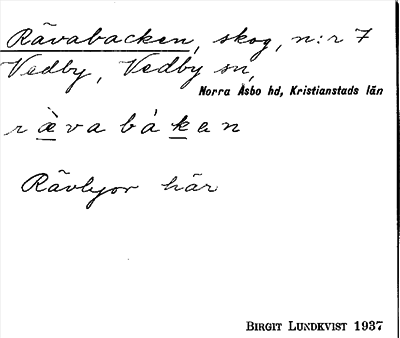 Rävabacken, skog, n:r 7
Vedby, Vedby sn,
Norra Åsbo hd, Kristianstads län
ræ̀vabáken
Rävlyor här
BIRGIT LUNDKVIST 1937